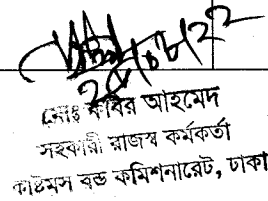 ২৫/০৮/২২
মোঃ কবির আহমেদ
সহকারী রাজস্ব কর্মকর্তা
কাষ্টমস বন্ড কমিশনারেট, ঢাকা